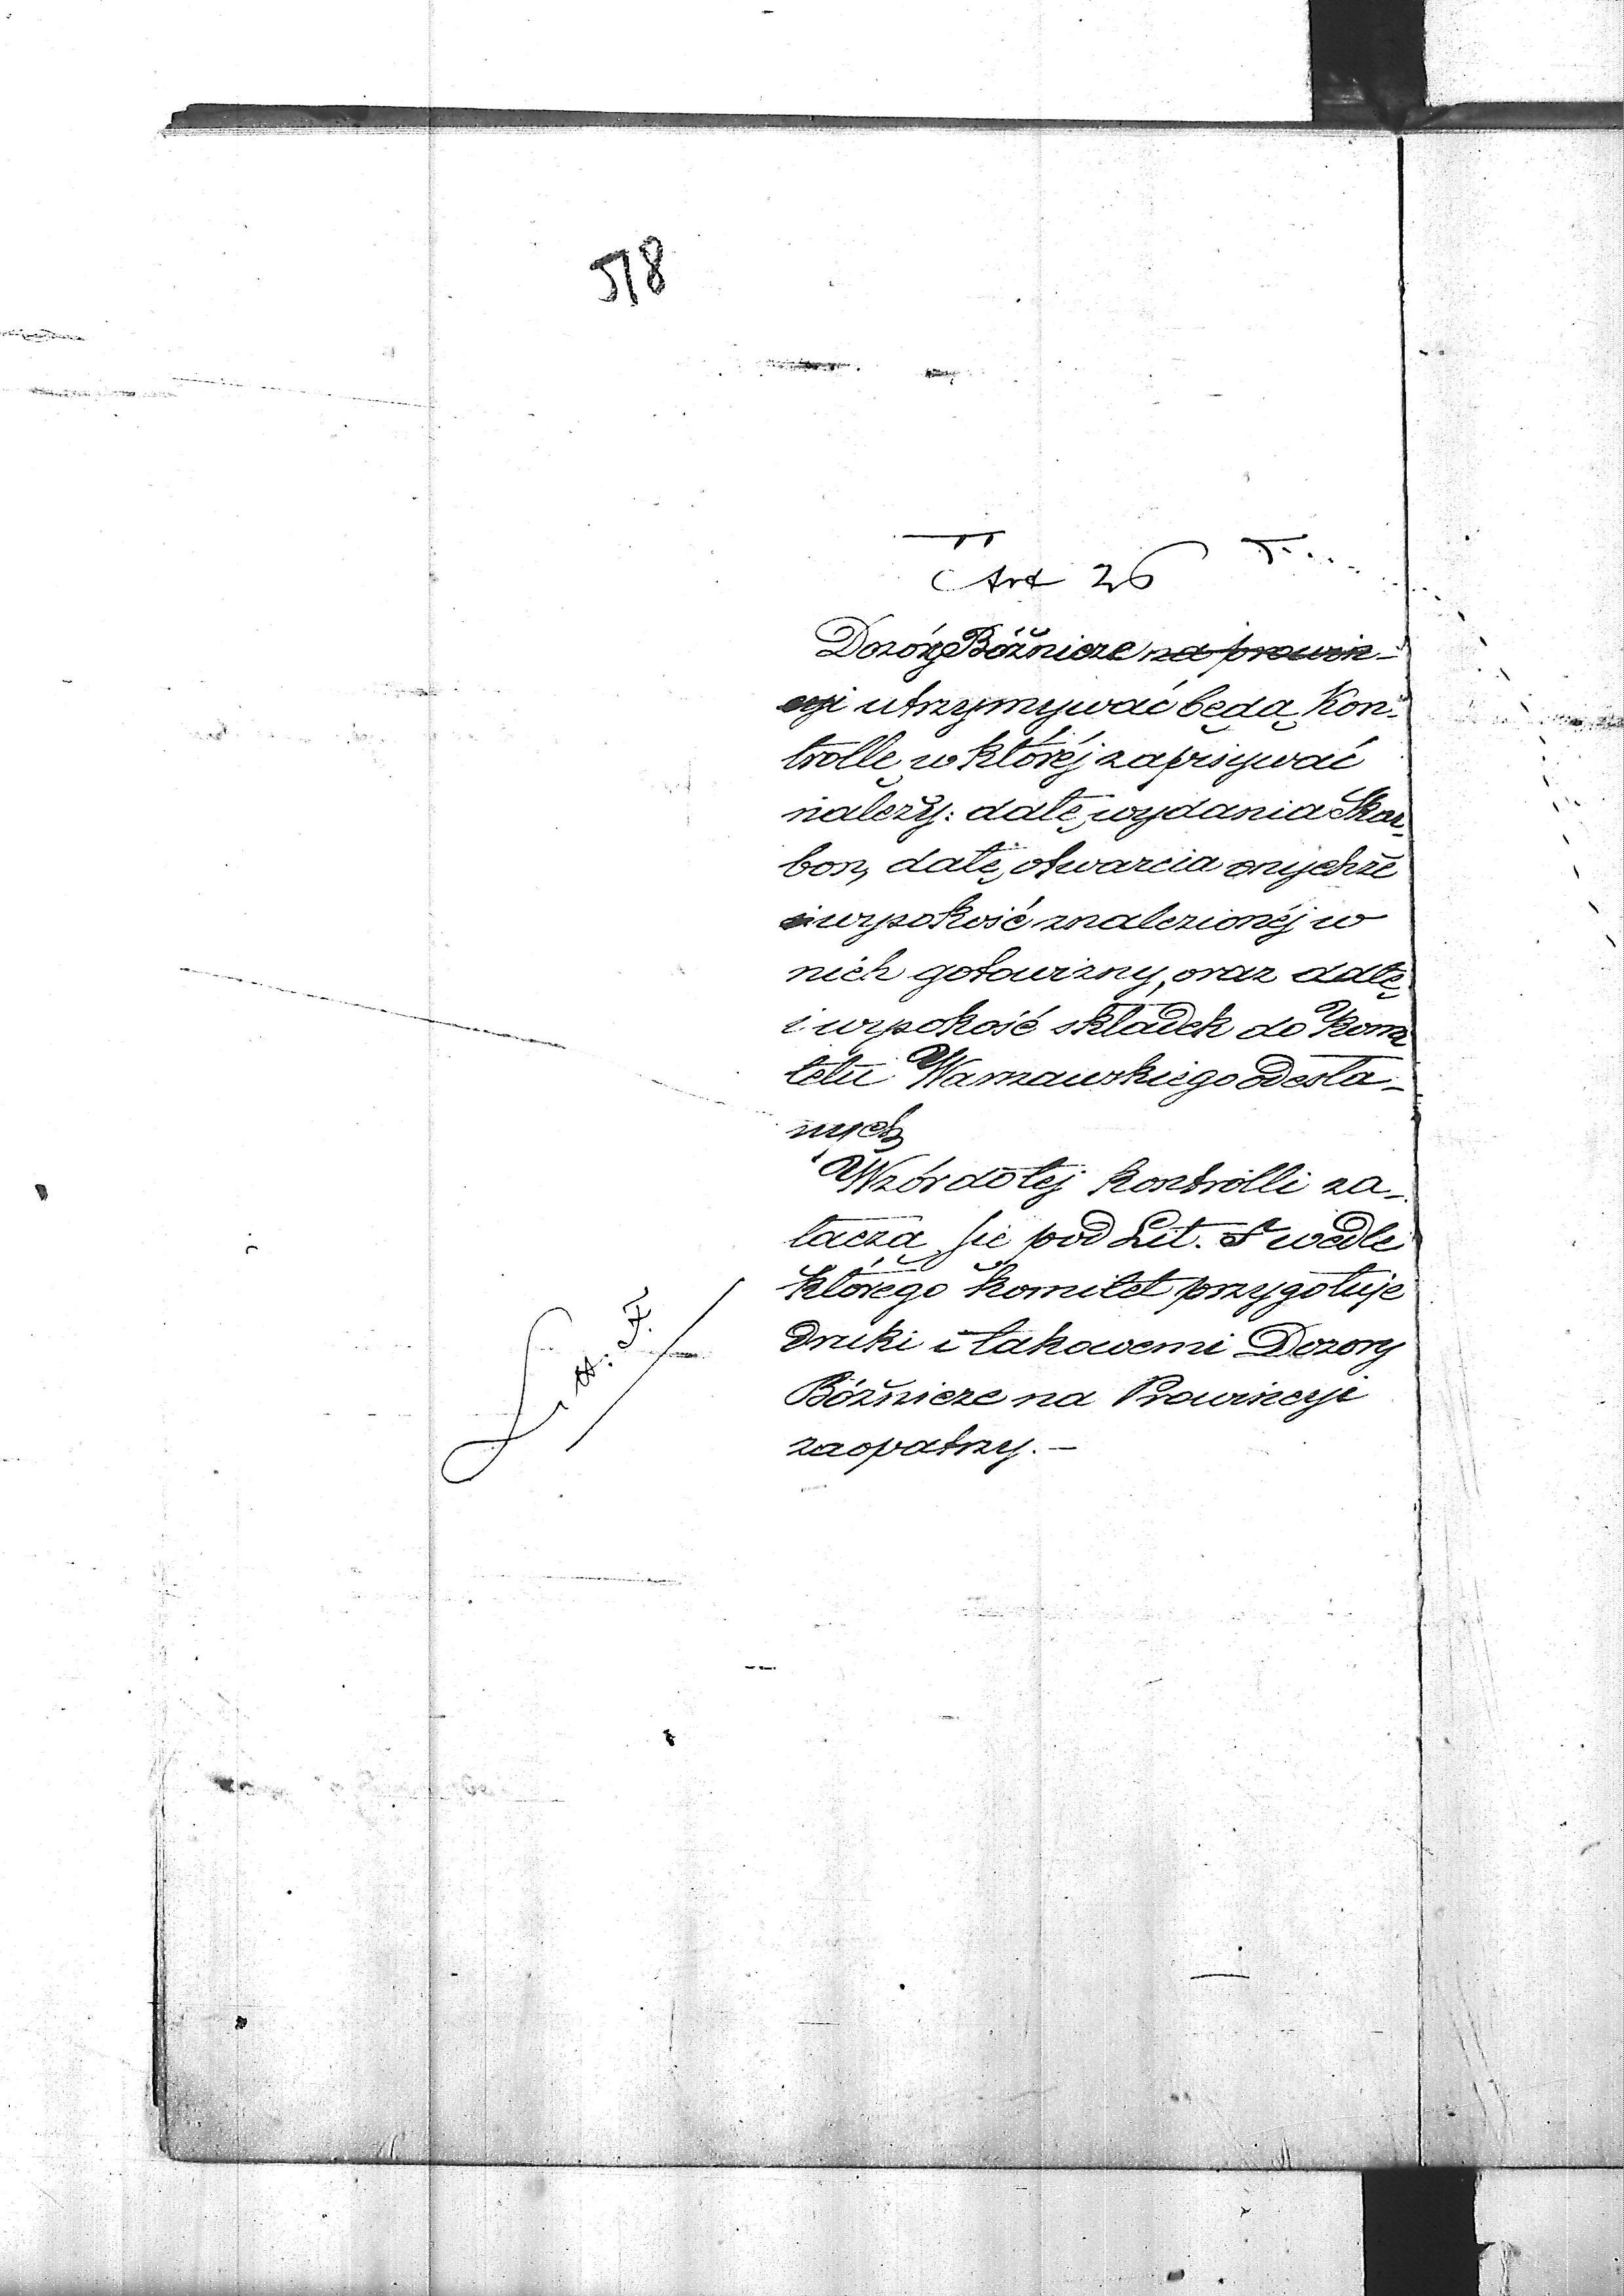 518
Art 26
Dozory Bóżnicze na prowin-
cyi utrzymywać będą Kon-
trollę w któréj zapisywać
należy: datę wydania Skar-
bon, datę otwarcia onychże
i wysokość znalezionéj w
nich gotowizny, oraz datę
i wysokość składek do Komi
tetu Warszawskiego odesła-
nych
Wzór do tej kontrolli za-
łącza się pod Lit. F wedle
którego komitet przygotuje
druki i takowemi Dozory
Bóżnicze na Prowincyi
zaopatrzy. —
Lit: F.